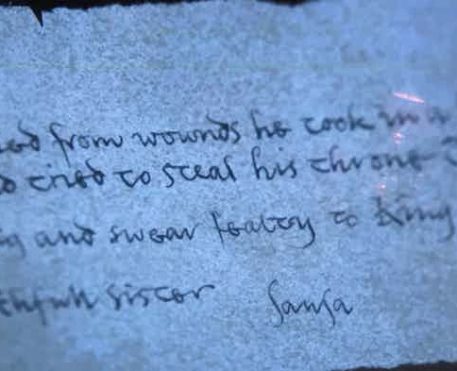 ed from wounds he took in a
d tried to steal his throne
g and swear fealty to King
thfull sister Sansa